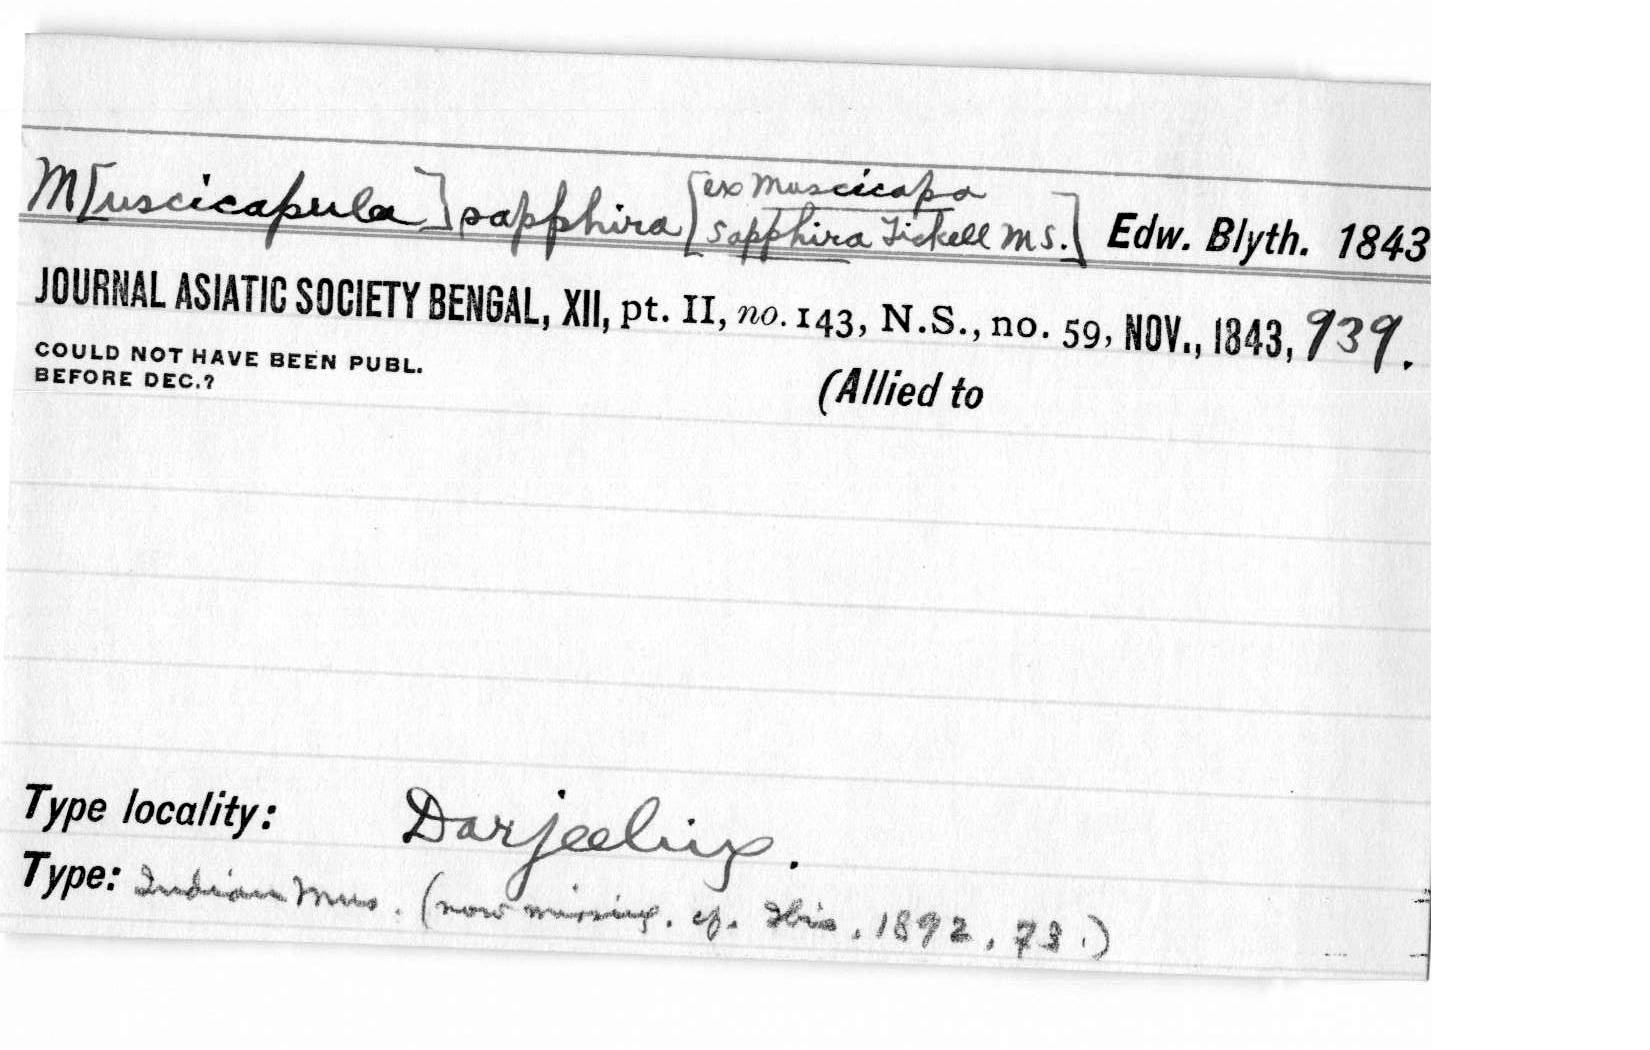 M[uscicapula] sapphira [ex Muscicapa sapphira Tickell MS.] Edw. Blyth. 1843
JOURNAL ASIATIC SOCIETY BENGAL, XII, pt. II, no. 143, N.S., no. 59, NOV., 1843, 939.
COULD NOT HAVE BEEN PUBL.
BEFORE DEC.?
(Allied to
Type locality: Darjeeling.
Type: Indian Mus. (now missing. cf. Ibis, 1892, 73.)